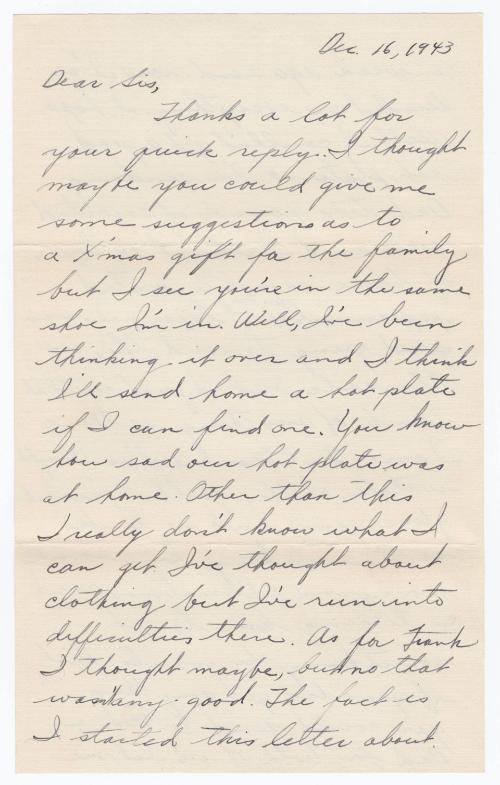 Dec. 16, 1943
Dear Sis,
Thanks a lot for
your quick reply. I thought
maybe you could give me
some suggestions as to
a X'mas gift for the family
but I see you're in the same
shoe I'm in. Well, I've been
thinking it over and I think
I'll send home a hot plate
if I can find one. You know
how sad our hot plate was
at home. Other than this
I really don't know what I
can get. I've thought about
clothing but I've run into
difficulties there. As for Frank
I thought maybe, but no that
wasn't any good. The fact is
I started this letter about